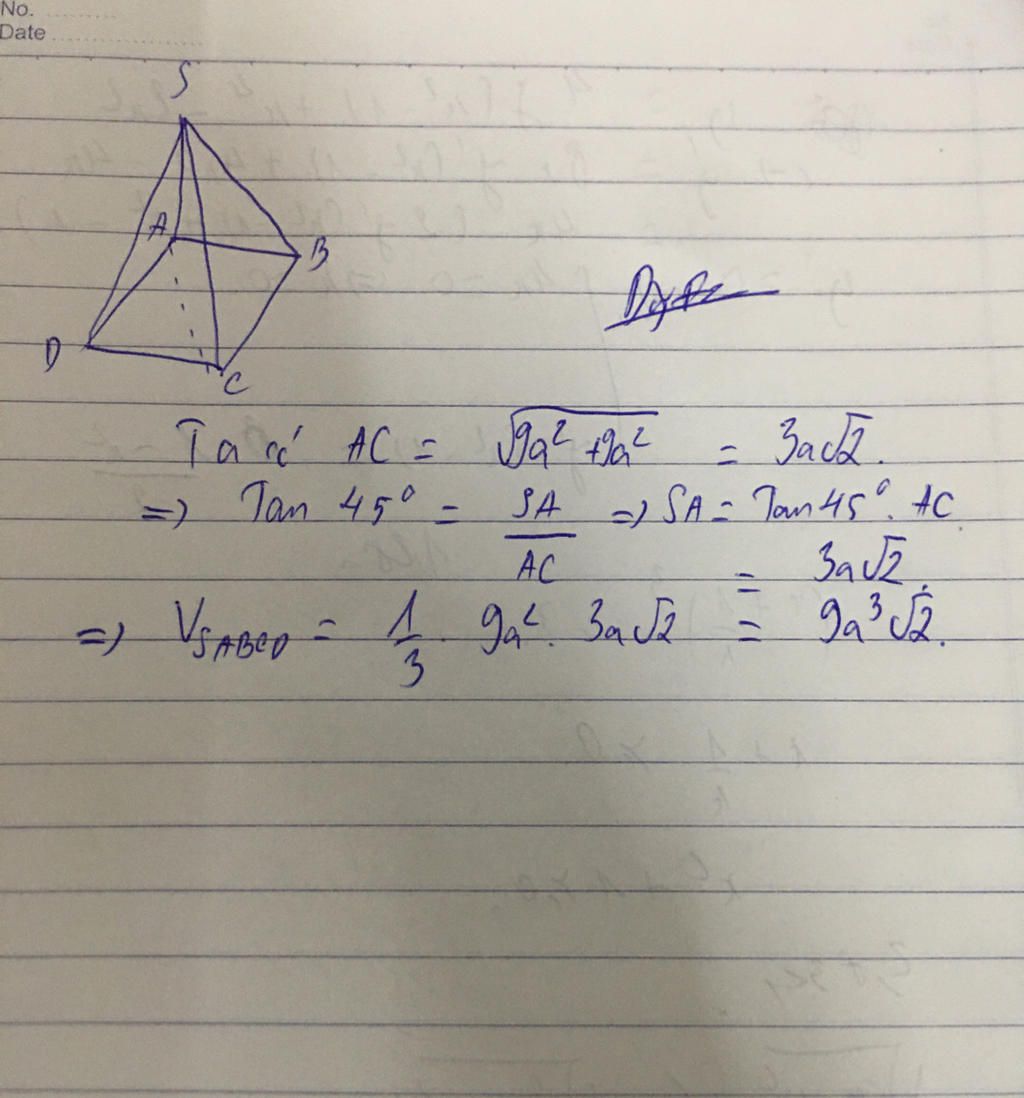 No. ..........
Date ....................
S
A
B
D
C
Ta có AC = √(9a² + 9a²) = 3a√2.
=> Tan 45° = SA/AC => SA = Tan 45°. AC
= 3a√2.
=> V_SABCD = 1/3 . 9a². 3a√2 = 9a³√2.